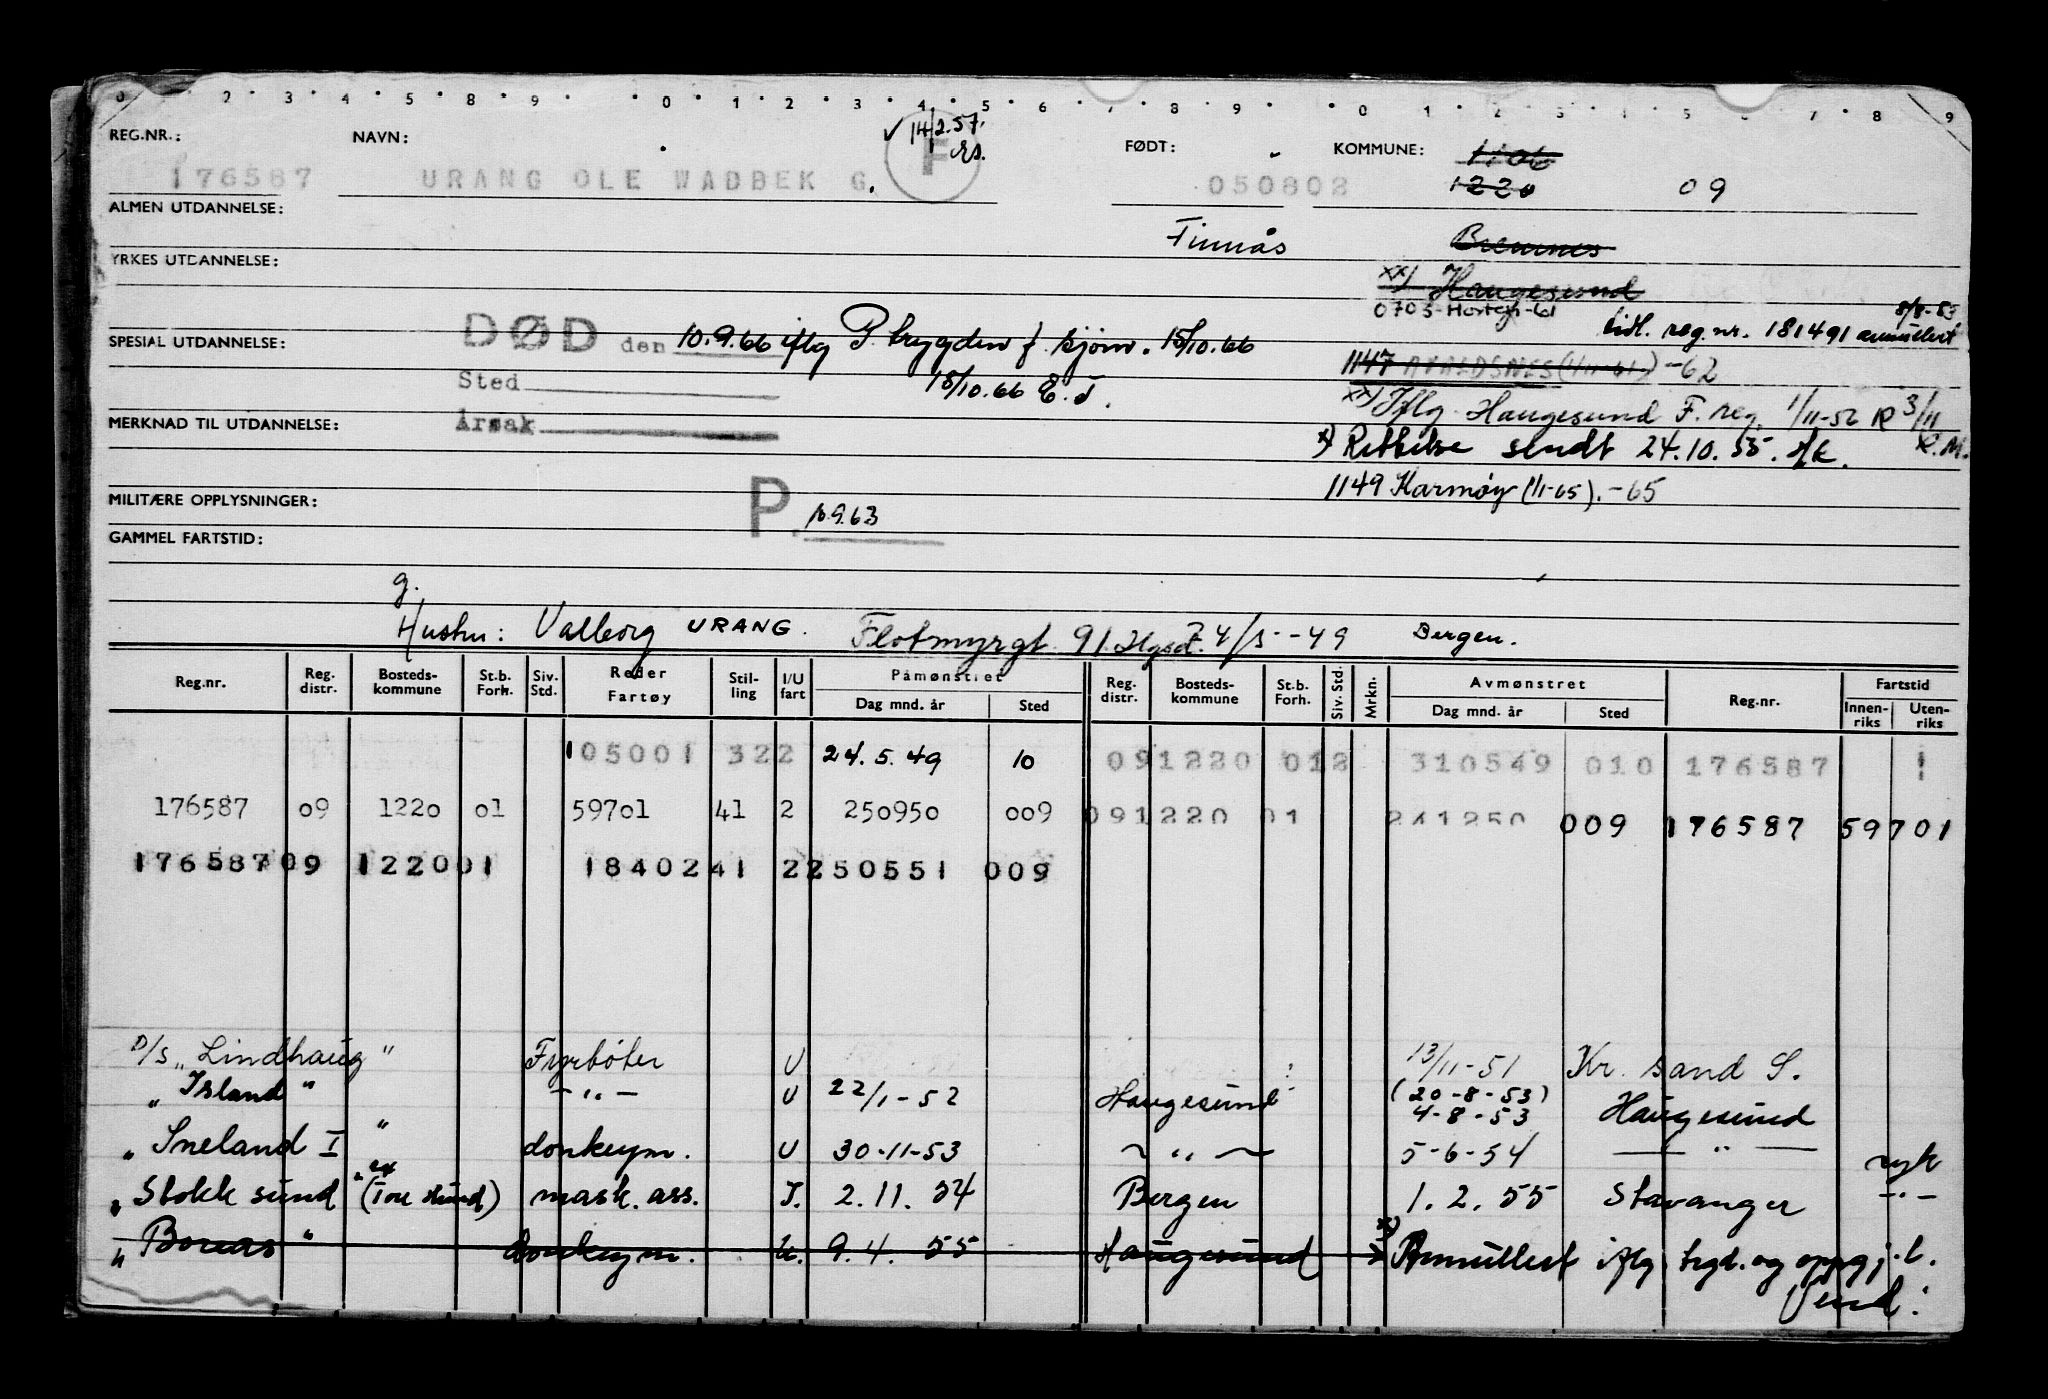 0 2 3 4 5 8 9 0 1 2 3 4 5 6 7 8 9 0 1 2 3 4 5 6 7 8 9
14/2.57.
REG.NR.: NAVN: F FØDT: KOMMUNE: 1106
176587 URANG OLE WADBEK G. 050802 1220 09
ALMEN UTDANNELSE:
Finnås Bremnes
YRKES UTDANNELSE:
xx) Haugesund
0703-Horten-61 8/8-53
tidl. reg.nr. 181491 annullert
SPESIAL UTDANNELSE: DØD den 10.9.66 iflg P. trygden f. sjøm. 15/10.66
1147 AVALDSNES (1/11-61) -62
Sted 15/10.66 E.J.
xx) Iflg. Haugesund F. reg. 1/11-52 R 3/11
MERKNAD TIL UTDANNELSE: Årsak R.M.
x) Rettelse sendt 24.10.55.
1149 Karmøy (1/1-65).-65
MILITÆRE OPPLYSNINGER: P. 10.9.63
GAMMEL FARTSTID:
g.
Hustru: Valborg URANG. Flotmyrgt. 91. Hgsd. 4/5--49 Bergen.
Reg.nr. Reg. distr. Bosteds-kommune St.b. Forh. Siv. Std. Reder Fartøy Stil-ling I/U fart Påmønstret Dag mnd. år Sted Reg. distr. Bosteds-kommune St.b. Forh. Siv. Std. Mrkn. Avmønstret Dag mnd. år Sted Reg.nr. Fartstid Innen-riks Uten-riks
105001 322 24.5.49 10 091220 012 310549 010 176587
176587 09 1220 01 59701 41 2 250950 009 091220 01 241250 009 176587 59701
176587 09 1220 01 18402 41 2 250551 009
D/S "Lindhaug" Fyrbøter U 13/11-51 Kr. sand S.
" Island " - " - U 22/1-52 Haugesund (20-8-53)
4-8-53 Haugesund
" Sneland I " donkeym. U 30-11-53 - " - 5-6-54 - " - syk
" Stokk sund " (ex Tore Hund) mask. ass. I. 2.11.54 Bergen 1.2.55 Stavanger - " -
" Boreas " donkeym. U. 9.4.55 Haugesund x) Annullert iflg. trgd. og oppgj.l.
Vend: